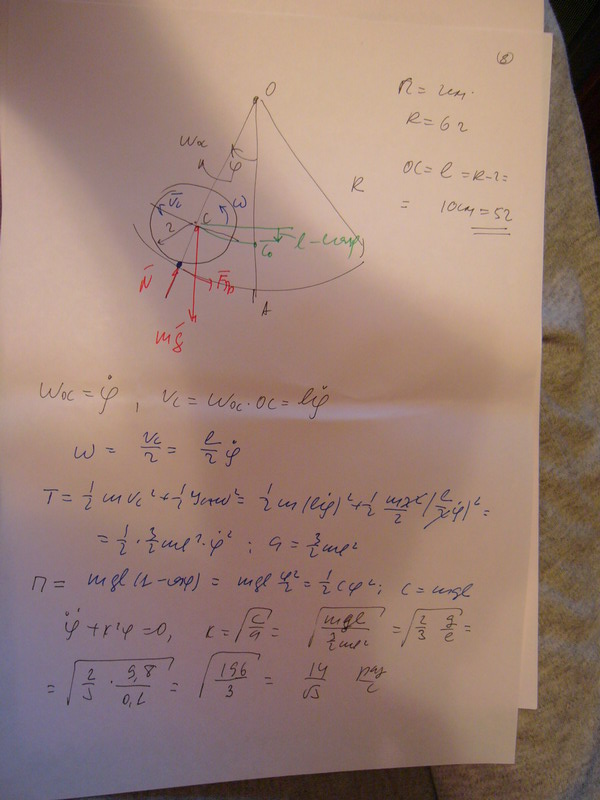 8
r = 2см.
R = 6r
OC = l = R-r =
= 10см = 5r
O
ω_OC
φ
R
V̄_C
ω
C
r
C₀
l-lcosφ
N̄
F̄_тр
A
mḡ
ω_OC = φ̇, V_C = ω_OC · OC = lφ̇
ω = V_C/r = l/r φ̇
T = 1/2 mV_C² + 1/2 J_Cω² = 1/2 m(lφ̇)² + 1/2 mr²/2 (l/r φ̇)² =
= 1/2 · 3/2 ml² · φ̇²; a = 3/2 ml²
П = mgl(1-cosφ) = mgl φ²/2 = 1/2 cφ²; c = mgl
φ̈ + k²φ = 0, k = √(c/a) = √(mgl / (3/2 ml²)) = √(2/3 g/l) =
= √(2/3 · 9,8/0,1) = √(196/3) = 14/√3 рад/с